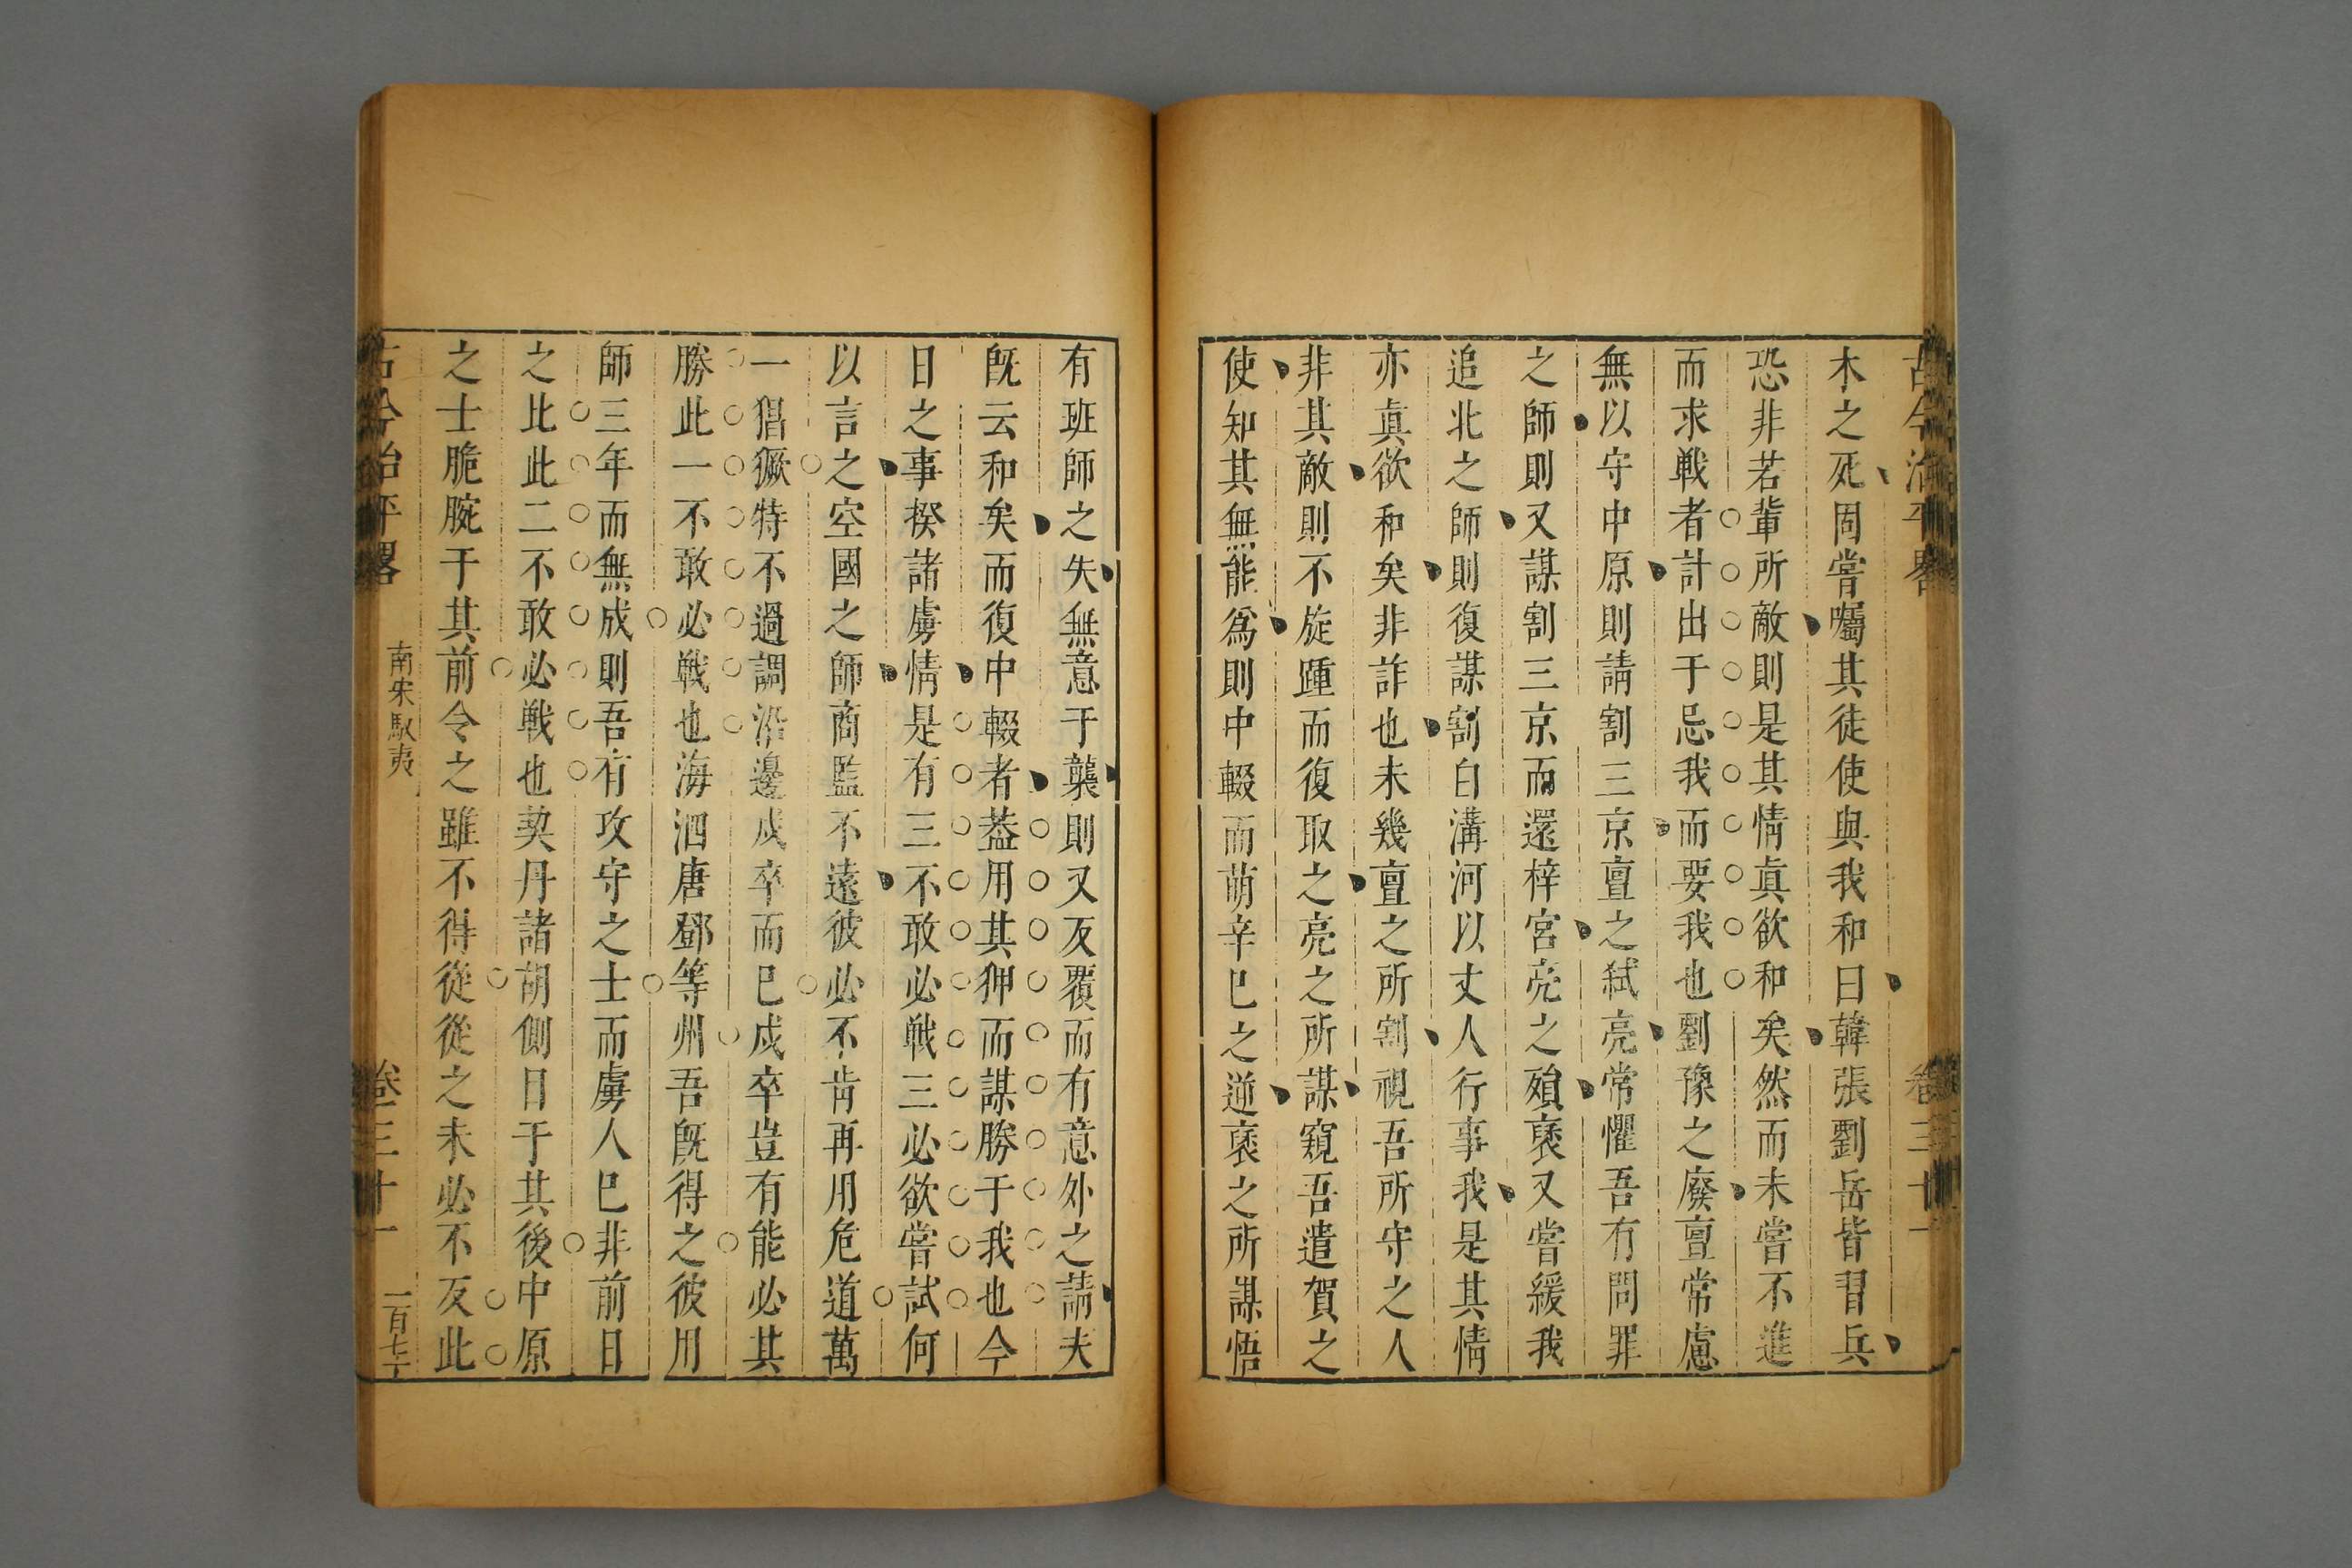 古今治平畧 卷三十一
木之死固嘗囑其徒使與我和曰韓張劉岳皆習兵
恐非若輩所敵則是其情真欲和矣然而未嘗不進
而求戰者計出于忌我而要我也劉豫之廢亶常慮
無以守中原則請割三京亶之弑亮常懼吾有問罪
之師則又謀割三京而還梓宮亮之殞褎又嘗緩我
追北之師則復謀割白溝河以丈人行事我是其情
亦真欲和矣非詐也未幾亶之所割視吾所守之人
非其敵則不旋踵而復取之亮之所謀窺吾遣賀之
使知其無能爲則中輟而萌辛巳之逆褎之所謀悟
有班師之失無意于襲則又反覆而有意外之請夫
既云和矣而復中輟者葢用其狎而謀勝于我也今
日之事揆諸虜情是有三不敢必戰三必欲嘗試何
以言之空國之師商監不遠彼必不肯再用危道萬
一猖獗特不過調沿邊戍卒而巳戍卒豈有能必其
勝此一不敢必戰也海泗唐鄧等州吾既得之彼用
師三年而無成則吾有攻守之士而虜人巳非前日
之比此二不敢必戰也契丹諸胡側目于其後中原
之士脆腕于其前令之雖不得從從之未必不反此
古今治平畧 南宋馭夷 卷三十一 一百七十